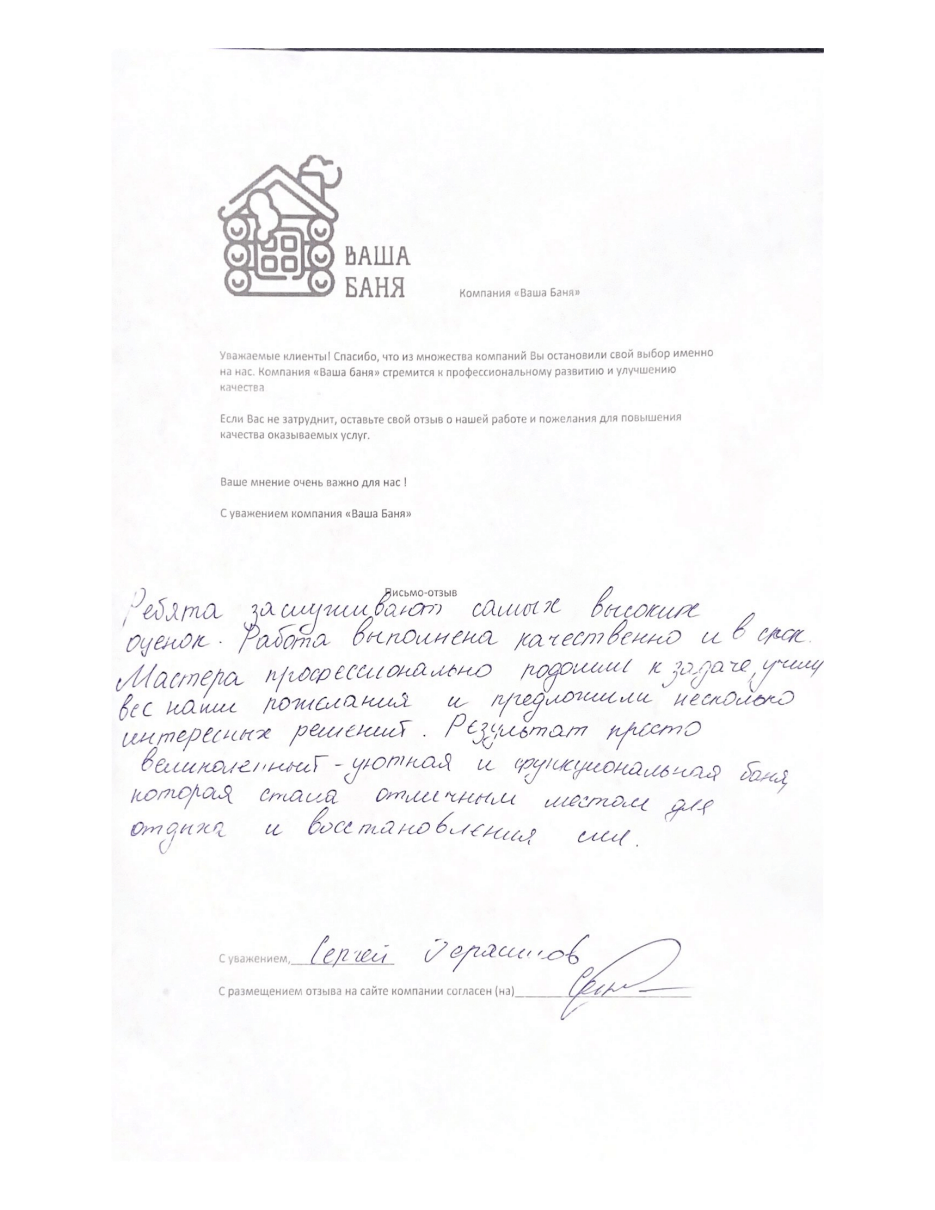 ВАША
БАНЯ
Компания «Ваша Баня»
Уважаемые клиенты! Спасибо, что из множества компаний Вы остановили свой выбор именно
на нас. Компания «Ваша баня» стремится к профессиональному развитию и улучшению
качества
Если Вас не затруднит, оставьте свой отзыв о нашей работе и пожелания для повышения
качества оказываемых услуг.
Ваше мнение очень важно для нас !
С уважением компания «Ваша Баня»
Письмо-отзыв
Ребята заслуживают самых высоких
оценок. Работа выполнена качественно и в срок.
Мастера профессионально подошли к задаче, учли
все наши пожелания и предложили несколько
интересных решений. Результат просто
великолепный - уютная и функциональная баня,
которая стала отличным местом для
отдыха и восстановления сил.
С уважением, Сергей Герасимов
С размещением отзыва на сайте компании согласен (на)